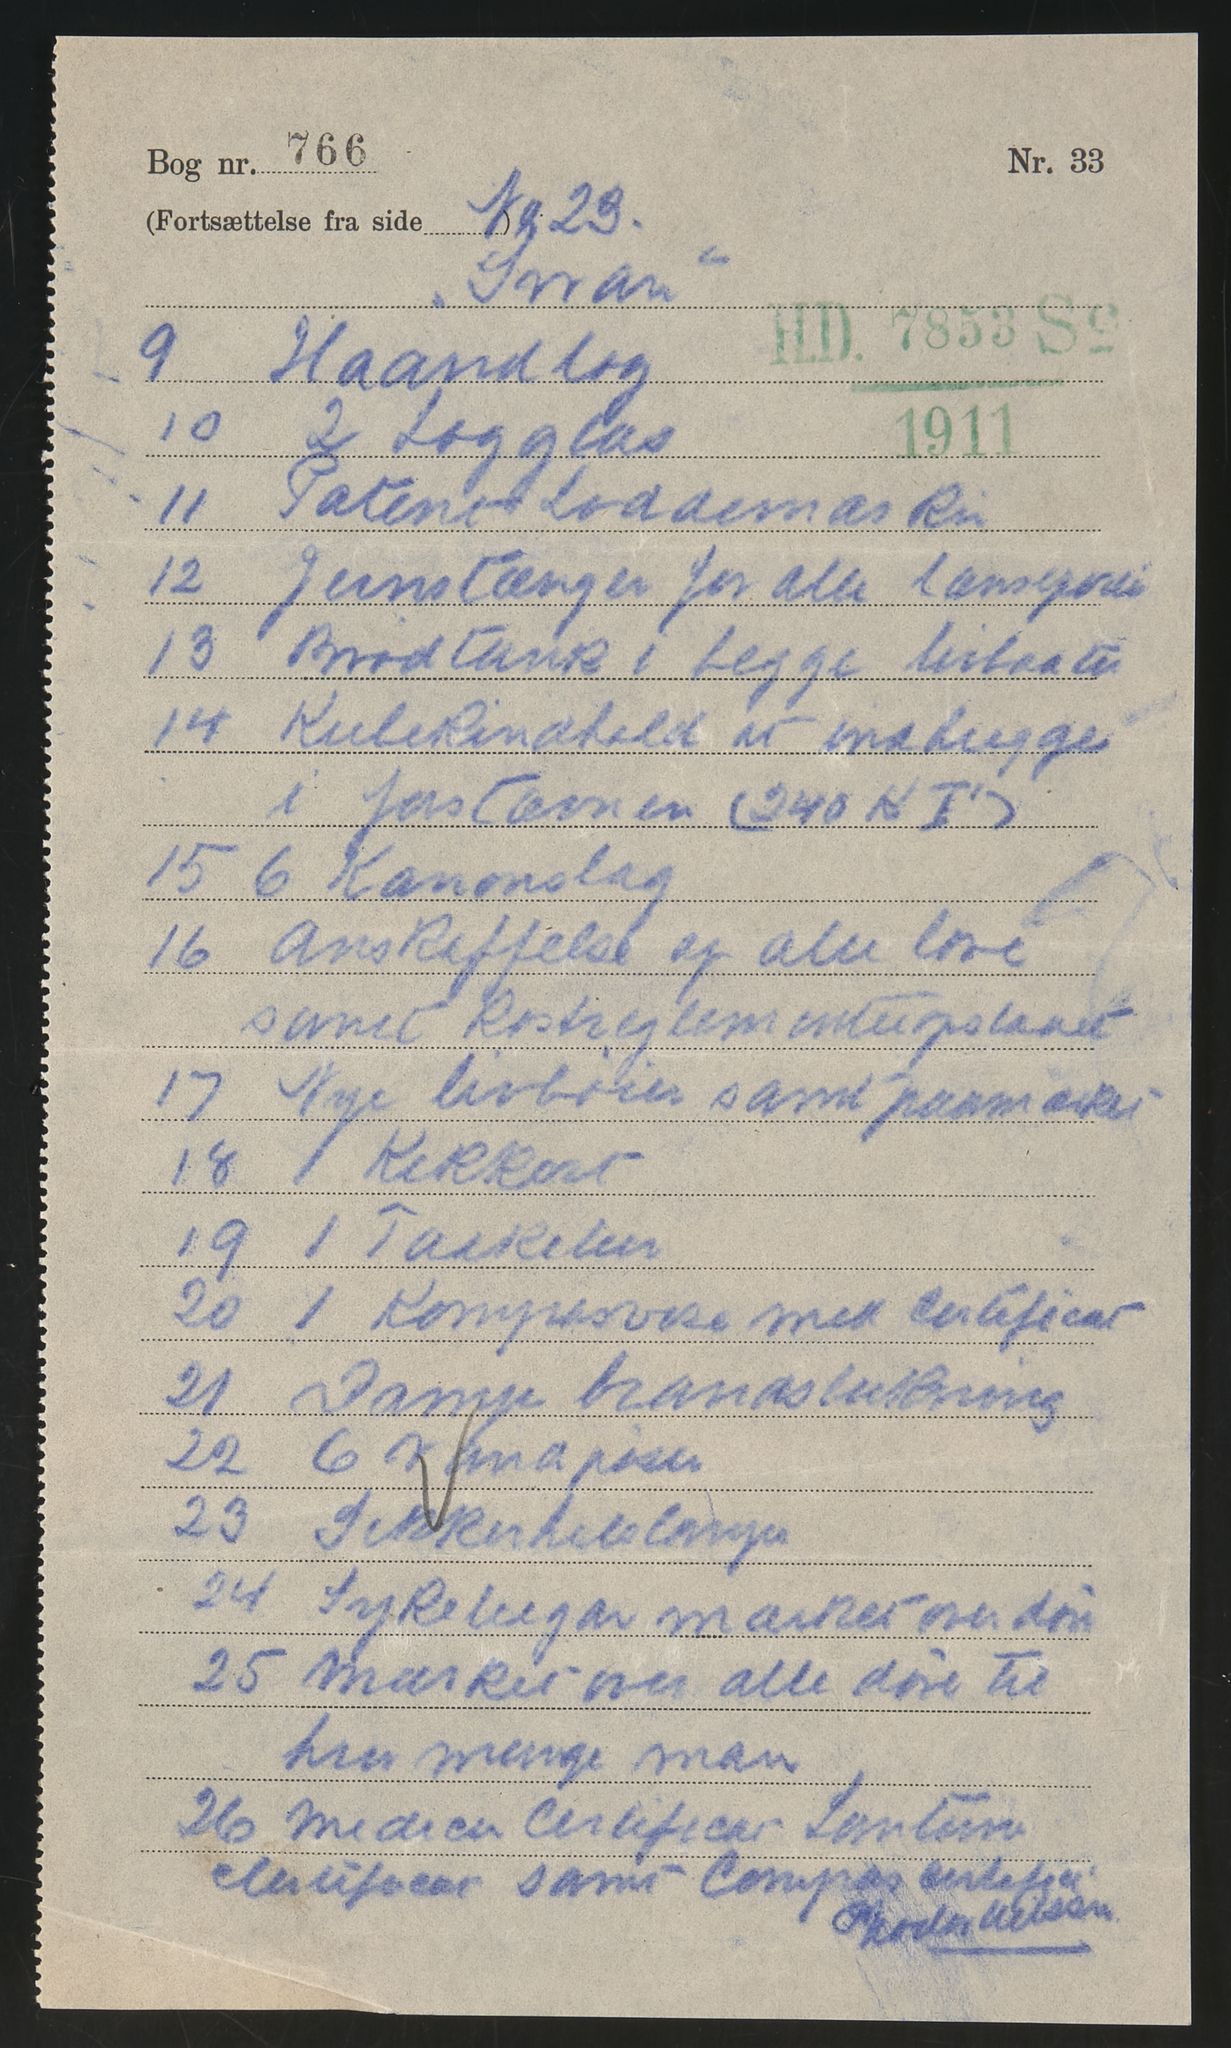 Bog nr. 766
Nr. 33
(Fortsættelse fra side ) No 23.
"Svan"
H.D. 7853 Sø
1911
9 Haandlog
10 2 Logglas
11 Patent Loddemaskin
12 Jernstænger for alle
13 Brødtank i begge livbaater
14 Kubikindhold at indhugges
i forstævnen (240 K I')
15 6 Kanonslag
16 Anskaffelse af alle love
samt Kostreglementetopslaaet
17 Nye livbøier samt paamærket
18 1 Kikkert
19 1 Taakelur
20 1 Kompasrose med Certificat
21 Damp brandslukning
22 6 Vandpøser
23 Sikkerhetslampe
24 Sykelugar mærket over dør
25 Mærket over alle døre til
hvor mange man
26 Medicin Certificat Lanterne
Certificat samt Compas